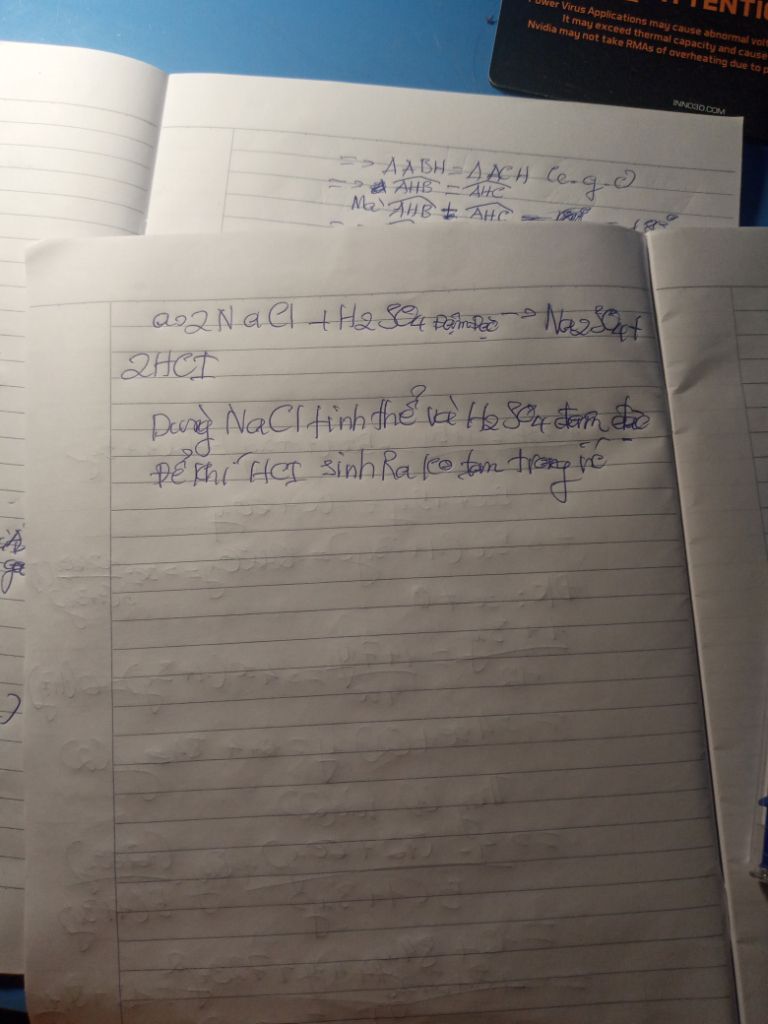 Power Virus Applications may cause abnormal volt
It may exceed thermal capacity and cause
Nvidia may not take RMAs of overheating due to p
INNO3D.COM
=> ΔABH = ΔACH (c-g-c)
=> AHB = AHC
Mà AHB + AHC
a, 2NaCl + H2SO4 Đậm Đặc -> Na2SO4 +
2HCl
Dùng NaCl tinh thể và H2SO4 đậm đặc
Để khí HCl sinh Ra ko tan trong